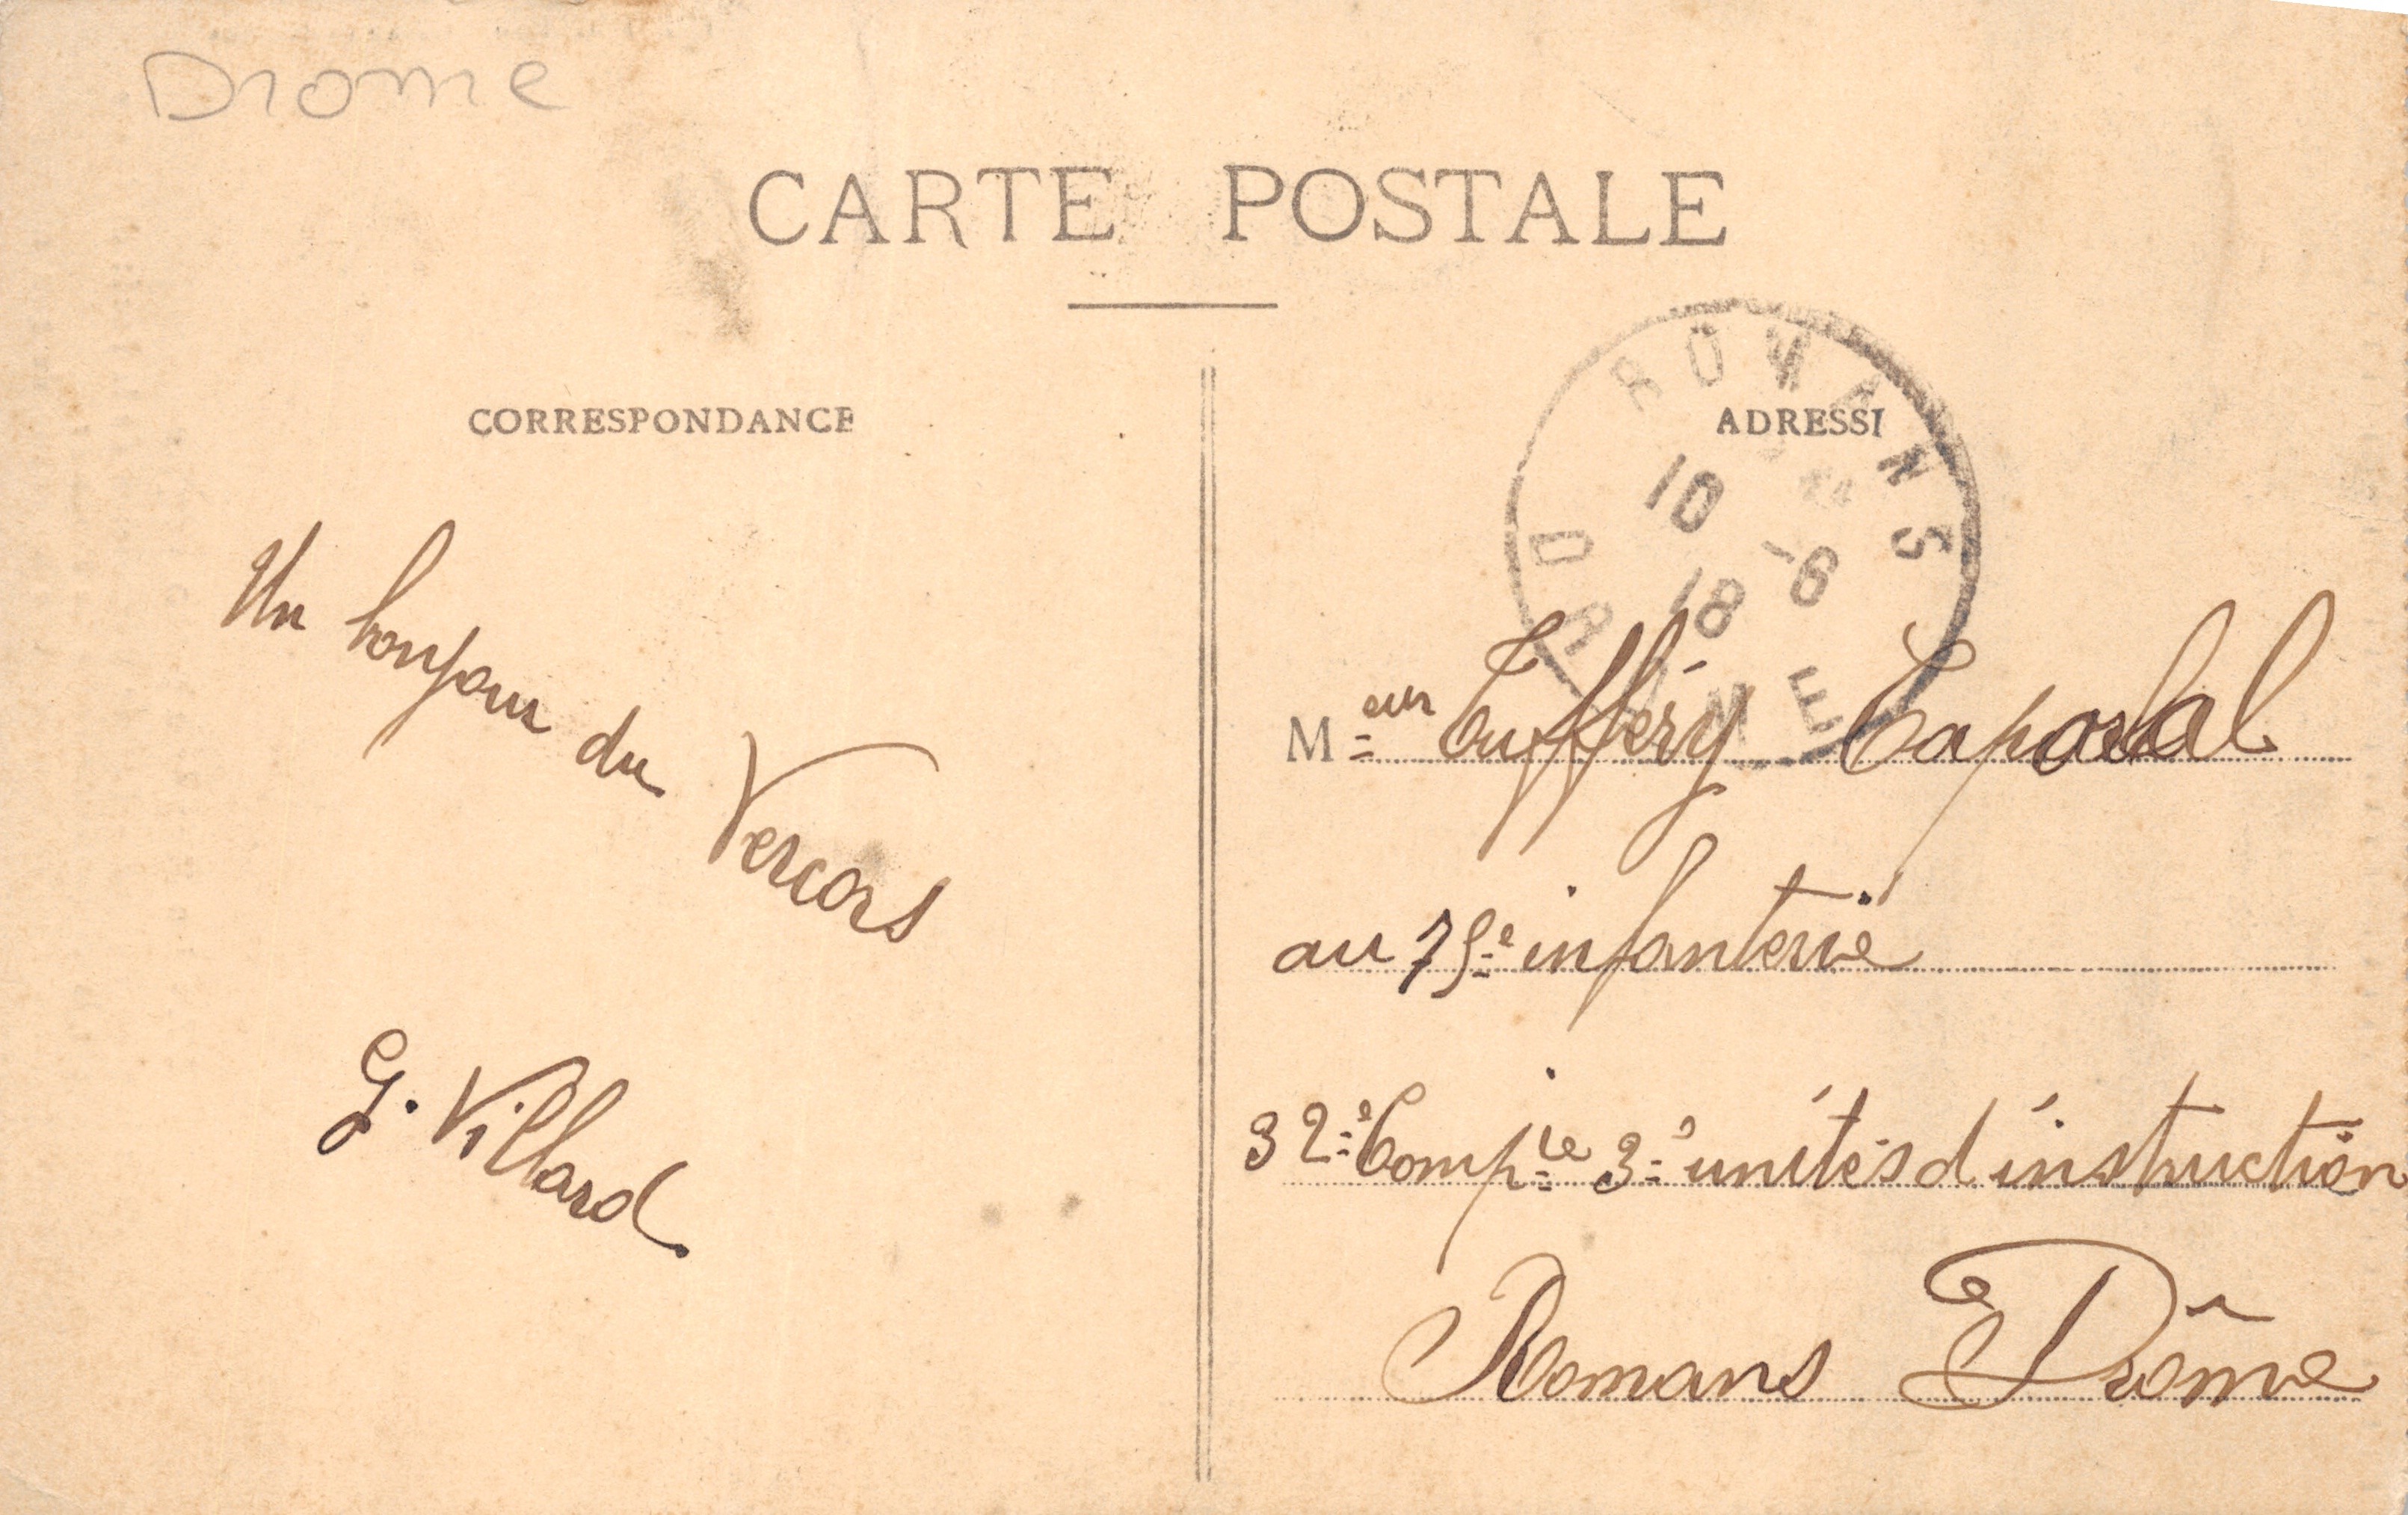 Drome
CARTE POSTALE
CORRESPONDANCE
Un bonjour du Vercors
G. Villard
ADRESSE
ROMANS
10 -6
18
DROME
Meur Tuffery Caporal
au 75e infanterie
32e Compie 3e unités d'instruction
Romans Drôme